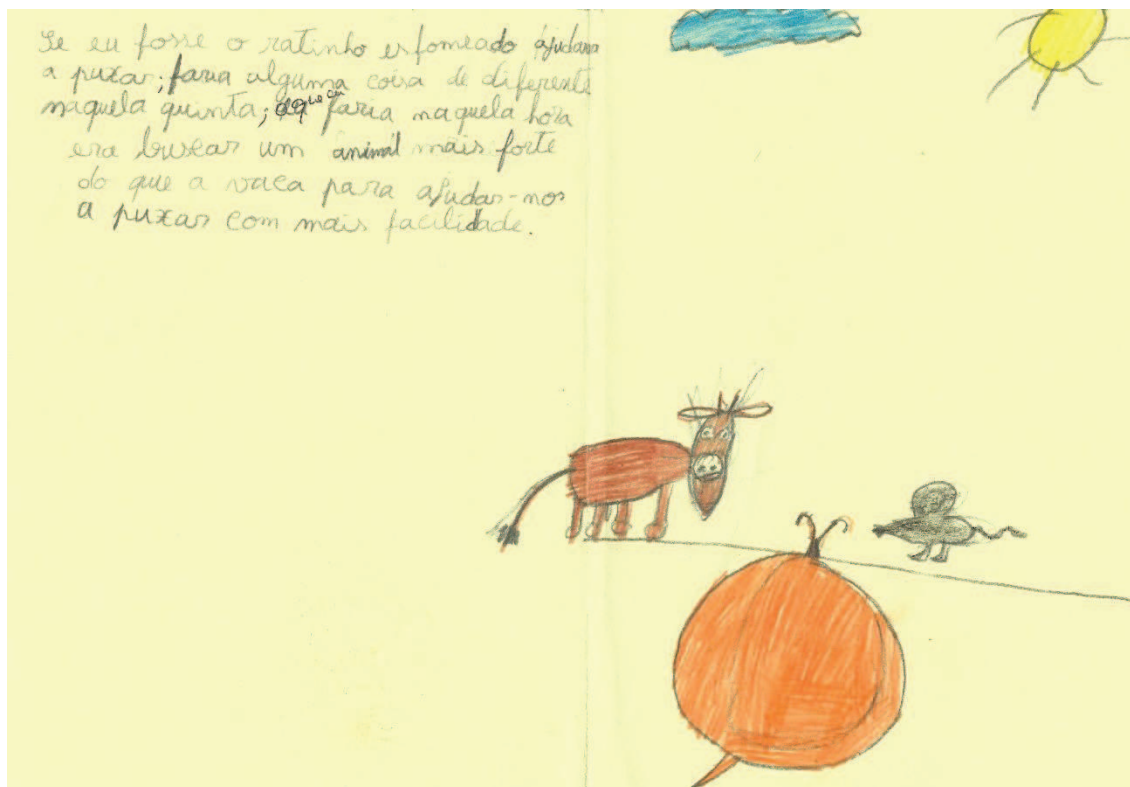 Se eu fosse o ratinho esfomeado ajudava
a puxar; faria alguma coisa de diferente
naquela quinta; o que eu faria naquela hora
era buscar um animal mais forte
do que a vaca para ajudar-nos
a puxar com mais facilidade.